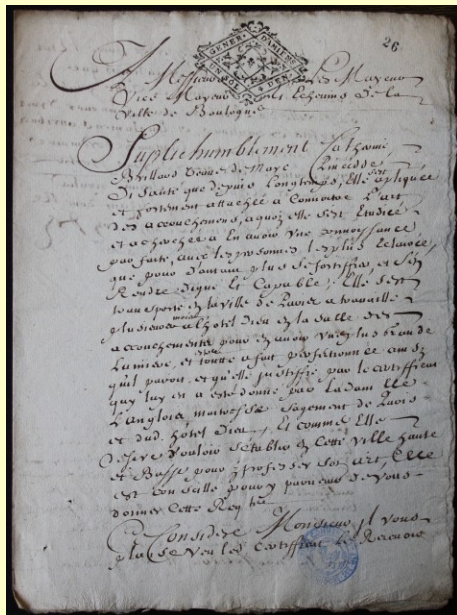 26
GENER DAMIENS
A Messieurs Les Mayeur
Vice Mayeur et Echevins de la
Ville de Boulogne
Suplie humblement Catherine
Veuve de Marc
disant que depuis Longtemps, Elle s'est apliquée
et fortement attachée à Connoitre L'art
des accouchemens, a quoy elle s'est Etudiée
et a cherchée a En avoir Une connoissance
parfaite, avec les personnes les plus Eclairée,
que pour d'autant plus se fortiffier, et s'En
Rendre digne et Capable, Elle s'est
transportée en la Ville de Paris a travaillé
plusieurs mois a l'hotel Dieu en la Salle des
accouchements pour en avoir Une plus grande
Lumiere, et toutte a fait perfectionnée ainsy
qu'il paroit, et qu'elle justiffie par le certifficat
quy luy en a esté donné par la dam.lle
Langlois maitresse Sagement de Paris
et dud. hôtel dieu, Et comme Elle
desire vouloir s'établir En Cette Ville haute
et Basse pour y professer Son art, Elle
est conseillé pour y parvenir de vous
donner Cette Req.te
Ce Consideré Messieurs il vous
plaise veu les Certifficat Le Recevoir